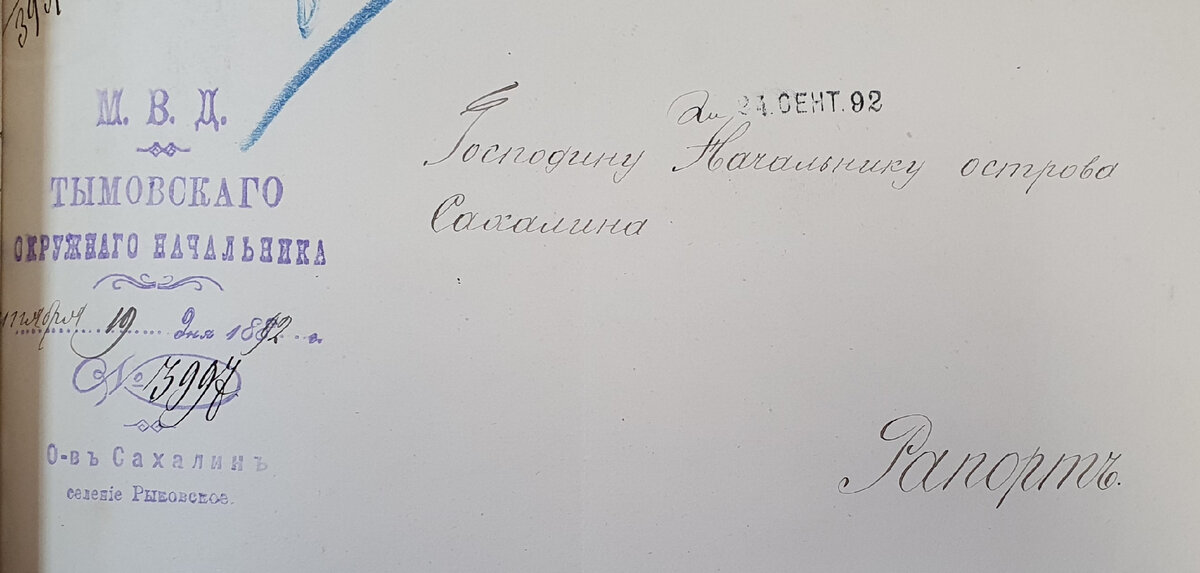 М. В. Д.
ТЫМОВСКАГО
ОКРУЖНАГО НАЧАЛЬНИКА
нтября 19 дня 1892 г.
№ 3997
О-въ Сахалинъ
селеніе Рыковское.
24. СЕНТ. 92
Господину Начальнику острова
Сахалина
Рапортъ.